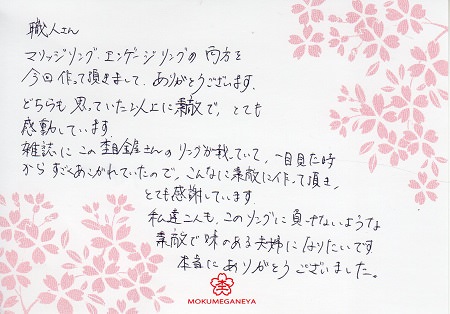 職人さん
マリッジリング、エンゲージリングの両方を
今回作って頂きまして、ありがとうございます。
どちらも思っていた以上に素敵で、とても
感動しています。
雑誌にこの杢目金屋さんのリングが載っていて、一目見た時
からすごくあこがれていたので、こんなに素敵に作って頂き、
とても感謝しています。
私達二人も、このリングに負けないような
素敵で味のある夫婦になりたいです
本当にありがとうございました。
MOKUMEGANEYA